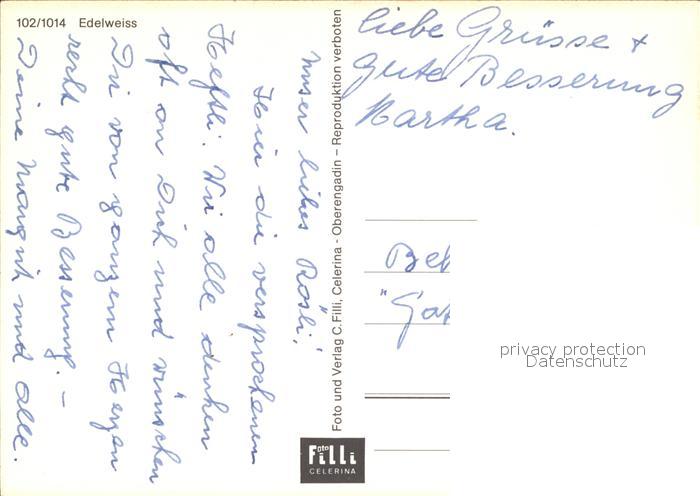 102/1014 Edelweiss
Unser liebes Rösli!
Hier die versprochenen
Heftli. Wir alle denken
oft an Dich und wünschen
Dir von ganzem Herzen
recht gute Besserung. –
Deine Margrit und alle.
Foto und Verlag C. Filli, Celerina - Oberengadin – Reproduktion verboten
liebe Grüsse +
gute Besserung
Martha.
Bet
"Gar
privacy protection
Datenschutz
Foto
FiLLi
CELERINA